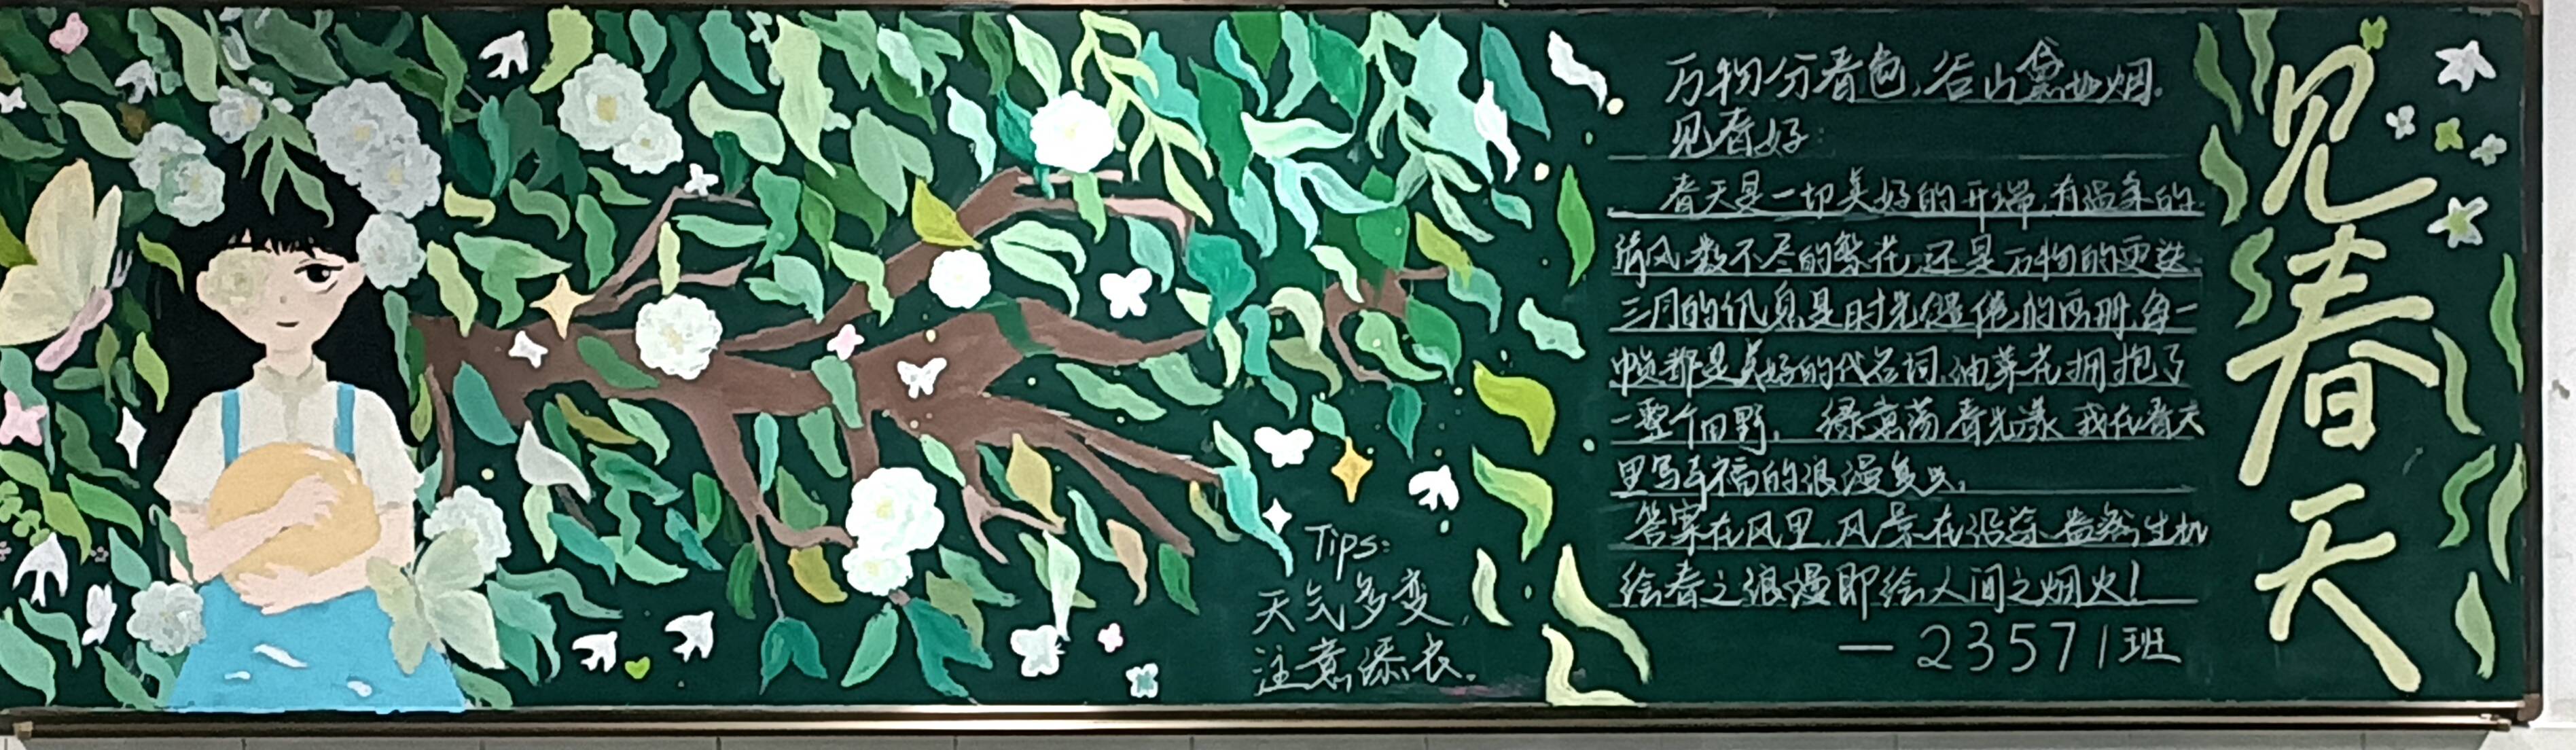 见春天
万物分春色,谷山黛如烟.
见春好:
春天是一切美好的开端,有温柔的
清风,数不尽的繁花,还是万物的更迭.
三月的讯息是时光缱绻的画册,每一
帧都是美好的代名词,油菜花拥抱了
一整个田野, 绿意荡春光漾,我在春天
里写幸福的浪漫
答案在风里,风景在沿途.盎然生机
绘春之浪漫即绘人间之烟火!
—23571班
Tips:
天气多变,
注意添衣.